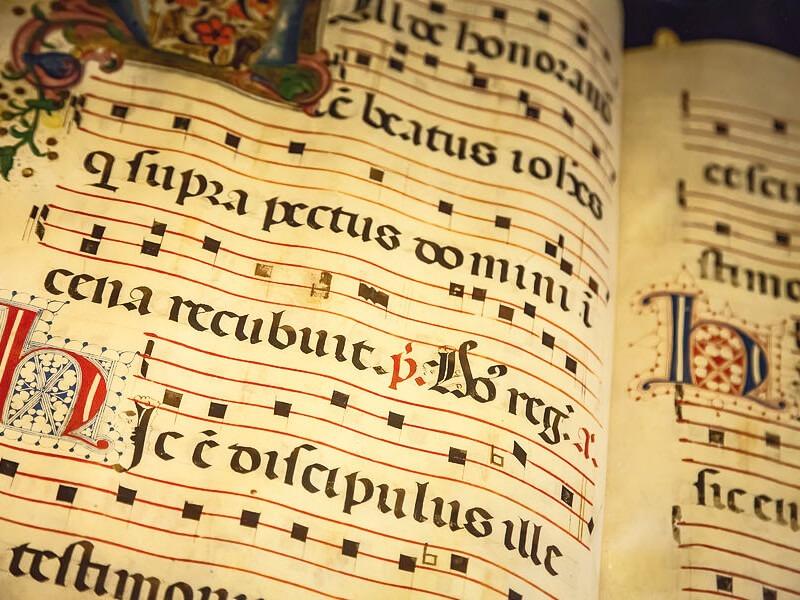 Ille honorand
ē beatus ioħes
q ſupra pectus domini i
cena recubuit. p̄. Do reg. a.
Ic ē diſcipulus ille
teſtimoniu
ſtimo
ſic eu